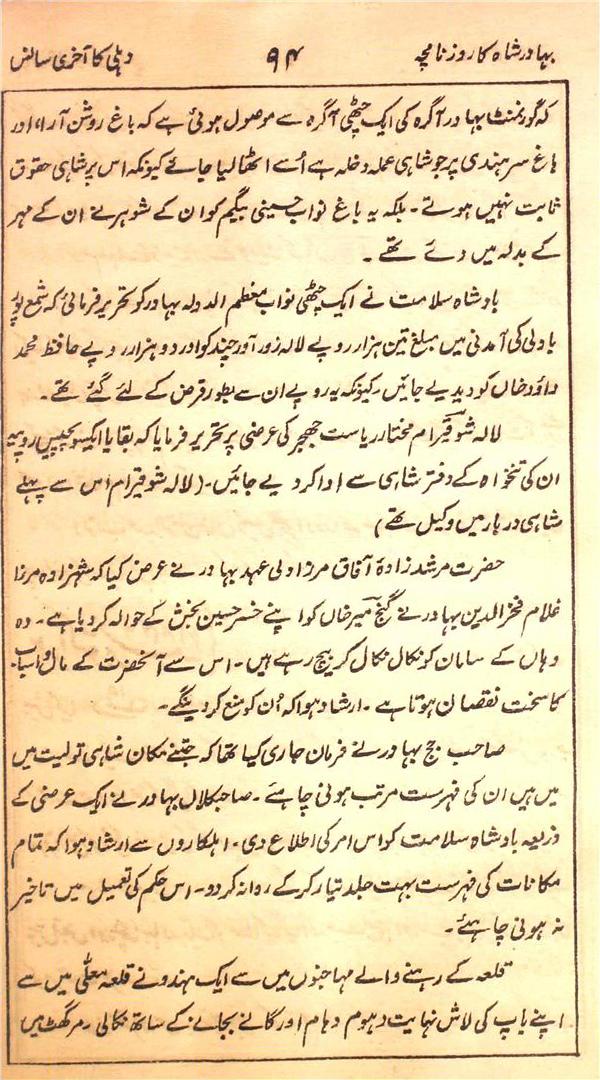 بہادر شاہ کا روزنامچہ ۹۴ دہلی کا آخری سانس
کہ گورنمنٹ بہادر آگرہ کی ایک چٹھی آگرہ سے موصول ہوئی ہے کہ باغ روشن آرا، اور
باغ سرہندی پر جو شاہی عملہ دخلہ ہے اُسے اٹھا لیا جائے کیونکہ اس پر شاہی حقوق
ثابت نہیں ہوتے۔ بلکہ یہ باغ نواب حسینی بیگم کو ان کے شوہر نے ان کے مہر
کے بدلہ میں دئے تھے۔
بادشاہ سلامت نے ایک چٹھی نواب معظم الدولہ بہادر کو تحریر فرمائی کہ شمع پور
باولی کی آمدنی میں مبلغ تین ہزار روپے لالہ زور آور چند کو اور دو ہزار روپے حافظ محمد
داؤد خاں کو دیدیے جائیں۔ کیونکہ یہ روپے ان سے بطور قرض کے لئے گئے تھے۔
لالہ شوقیرام مختار ریاست جھجر کی عرضی پر تحریر فرمایا کہ بقایا ایکسو پچیس روپیہ
ان کی تنخواہ کے دفتر شاہی سے ادا کر دیے جائیں۔ (لالہ شوقیرام اس سے پہلے
شاہی دربار میں وکیل تھے)
حضرت مرشد زادۂ آفاق مرزا ولی عہد بہادر نے عرض کیا کہ شہزادہ مرزا
غلام فخر الدین بہادر نے گنج میر خاں کو اپنے خسر حسین بخش کے حوالہ کر دیا ہے۔ وہ
وہاں کے سامان کو نکال نکال کر بیچ رہے ہیں۔ اس سے آنحضرت کے مال و اسباب
کا سخت نقصان ہوتا ہے۔ ارشاد ہوا کہ اُن کو منع کر دینگے۔
صاحب جج بہادر نے فرمان جاری کیا تھا کہ جتنے مکان شاہی تولیت میں
میں ہیں ان کی فہرست مرتب ہونی چاہئے۔ صاحب کلاں بہادر نے ایک عرضی کے
ذریعہ بادشاہ سلامت کو اس امر کی اطلاع دی۔ اہلکاروں سے ارشاد ہوا کہ تمام
مکانات کی فہرست بہت جلد تیار کر کے روانہ کر دو۔ اس حکم کی تعمیل میں تاخیر
نہ ہونی چاہئے۔
قلعہ کے رہنے والے مہاجنوں میں سے ایک ہندو نے قلعہ معلّٰی میں سے
اپنے باپ کی لاش نہایت دہوم دہام اور گانے بجانے کے ساتھ نکالی۔ مرگھٹ میں